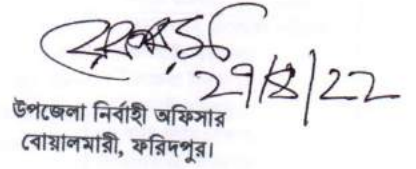 29/8/22
উপজেলা নির্বাহী অফিসার
বোয়ালমারী, ফরিদপুর।